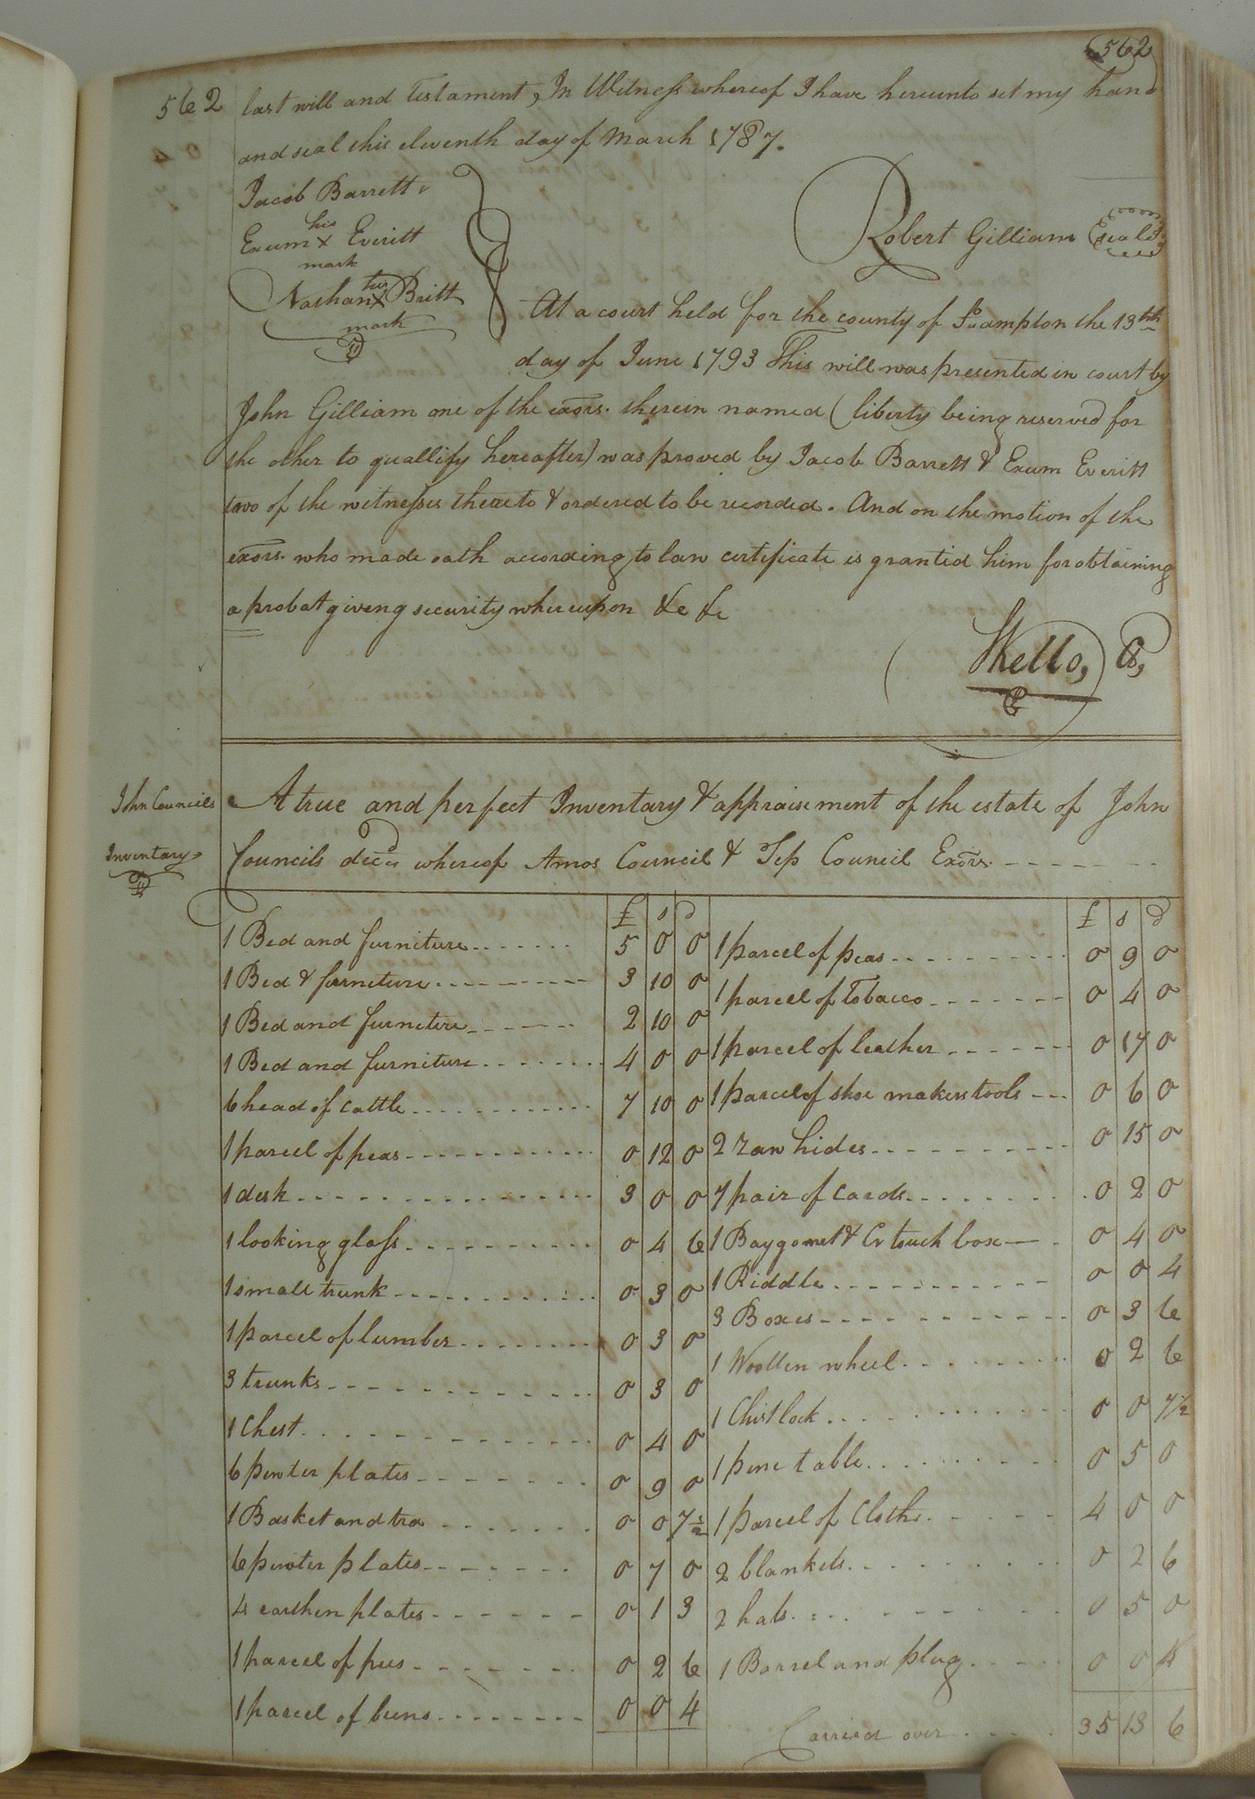 562
562 last will and Testament, In Witness whereof I have hereunto set my hand
and seal this eleventh day of March 1787.
Jacob Barrett
his
Exum X Everitt
mark
Robert Gilliam (seal)
his
Nathan X Britt
mark
At a court held for the county of So.ampton the 13th
day of June 1793 This will was presented in court by
John Gilliam one of the exors. therein named (liberty being reserved for
the other to quallify hereafter) was proved by Jacob Barrett & Exum Everitt
two of the witnesses thereto & ordered to be recorded. And on the motion of the
exors. who made oath according to law certificate is granted him for obtaining
a probat giveng security whereupon &c &c
John Councils
Inventory
A true and perfect Inventory & appraisement of the estate of John
Councils decd whereof Amos Council & Council Exors.
£ s d
1 Bed and furniture 5 0 0
1 Bed & furneture 3 10 0
1 Bed and furneture 2 10 0
1 Bed and furniture 4 0 0
6 head of cattle 7 10 0
1 parcel of peas 0 12 0
1 desk 3 0 0
1 looking glass 0 4 6
1 small trunk 0 3 0
1 parcel of lumber 0 3 0
3 trunks 0 3 0
1 Chest 0 4 0
6 pewter plates 0 9 0
1 Basket and 0 0 7½
6 pewter plates 0 7 0
4 earthen plates 0 1 3
1 parcel of pees 0 2 6
1 parcel of beens 0 0 4
£ s d
1 parcel of peas 0 9 0
1 parcel of Tobacco 0 4 0
1 parcel of leather 0 17 0
1 parcel of shoe makers tools 0 6 0
2 raw hides 0 15 0
7 pair of cards 0 2 0
1 Baygonet & Crtouch box 0 4 0
1 Riddle 0 0 4
3 Boxes 0 3 6
1 Woollen wheel 0 2 6
1 Chest lock 0 0 7½
1 pine table 0 5 0
1 parcel of Cloths 4 0 0
2 blankets 0 2 6
2 hats 0 5 0
1 Barrel and plug 0 0 4
Carried over 35 13 6